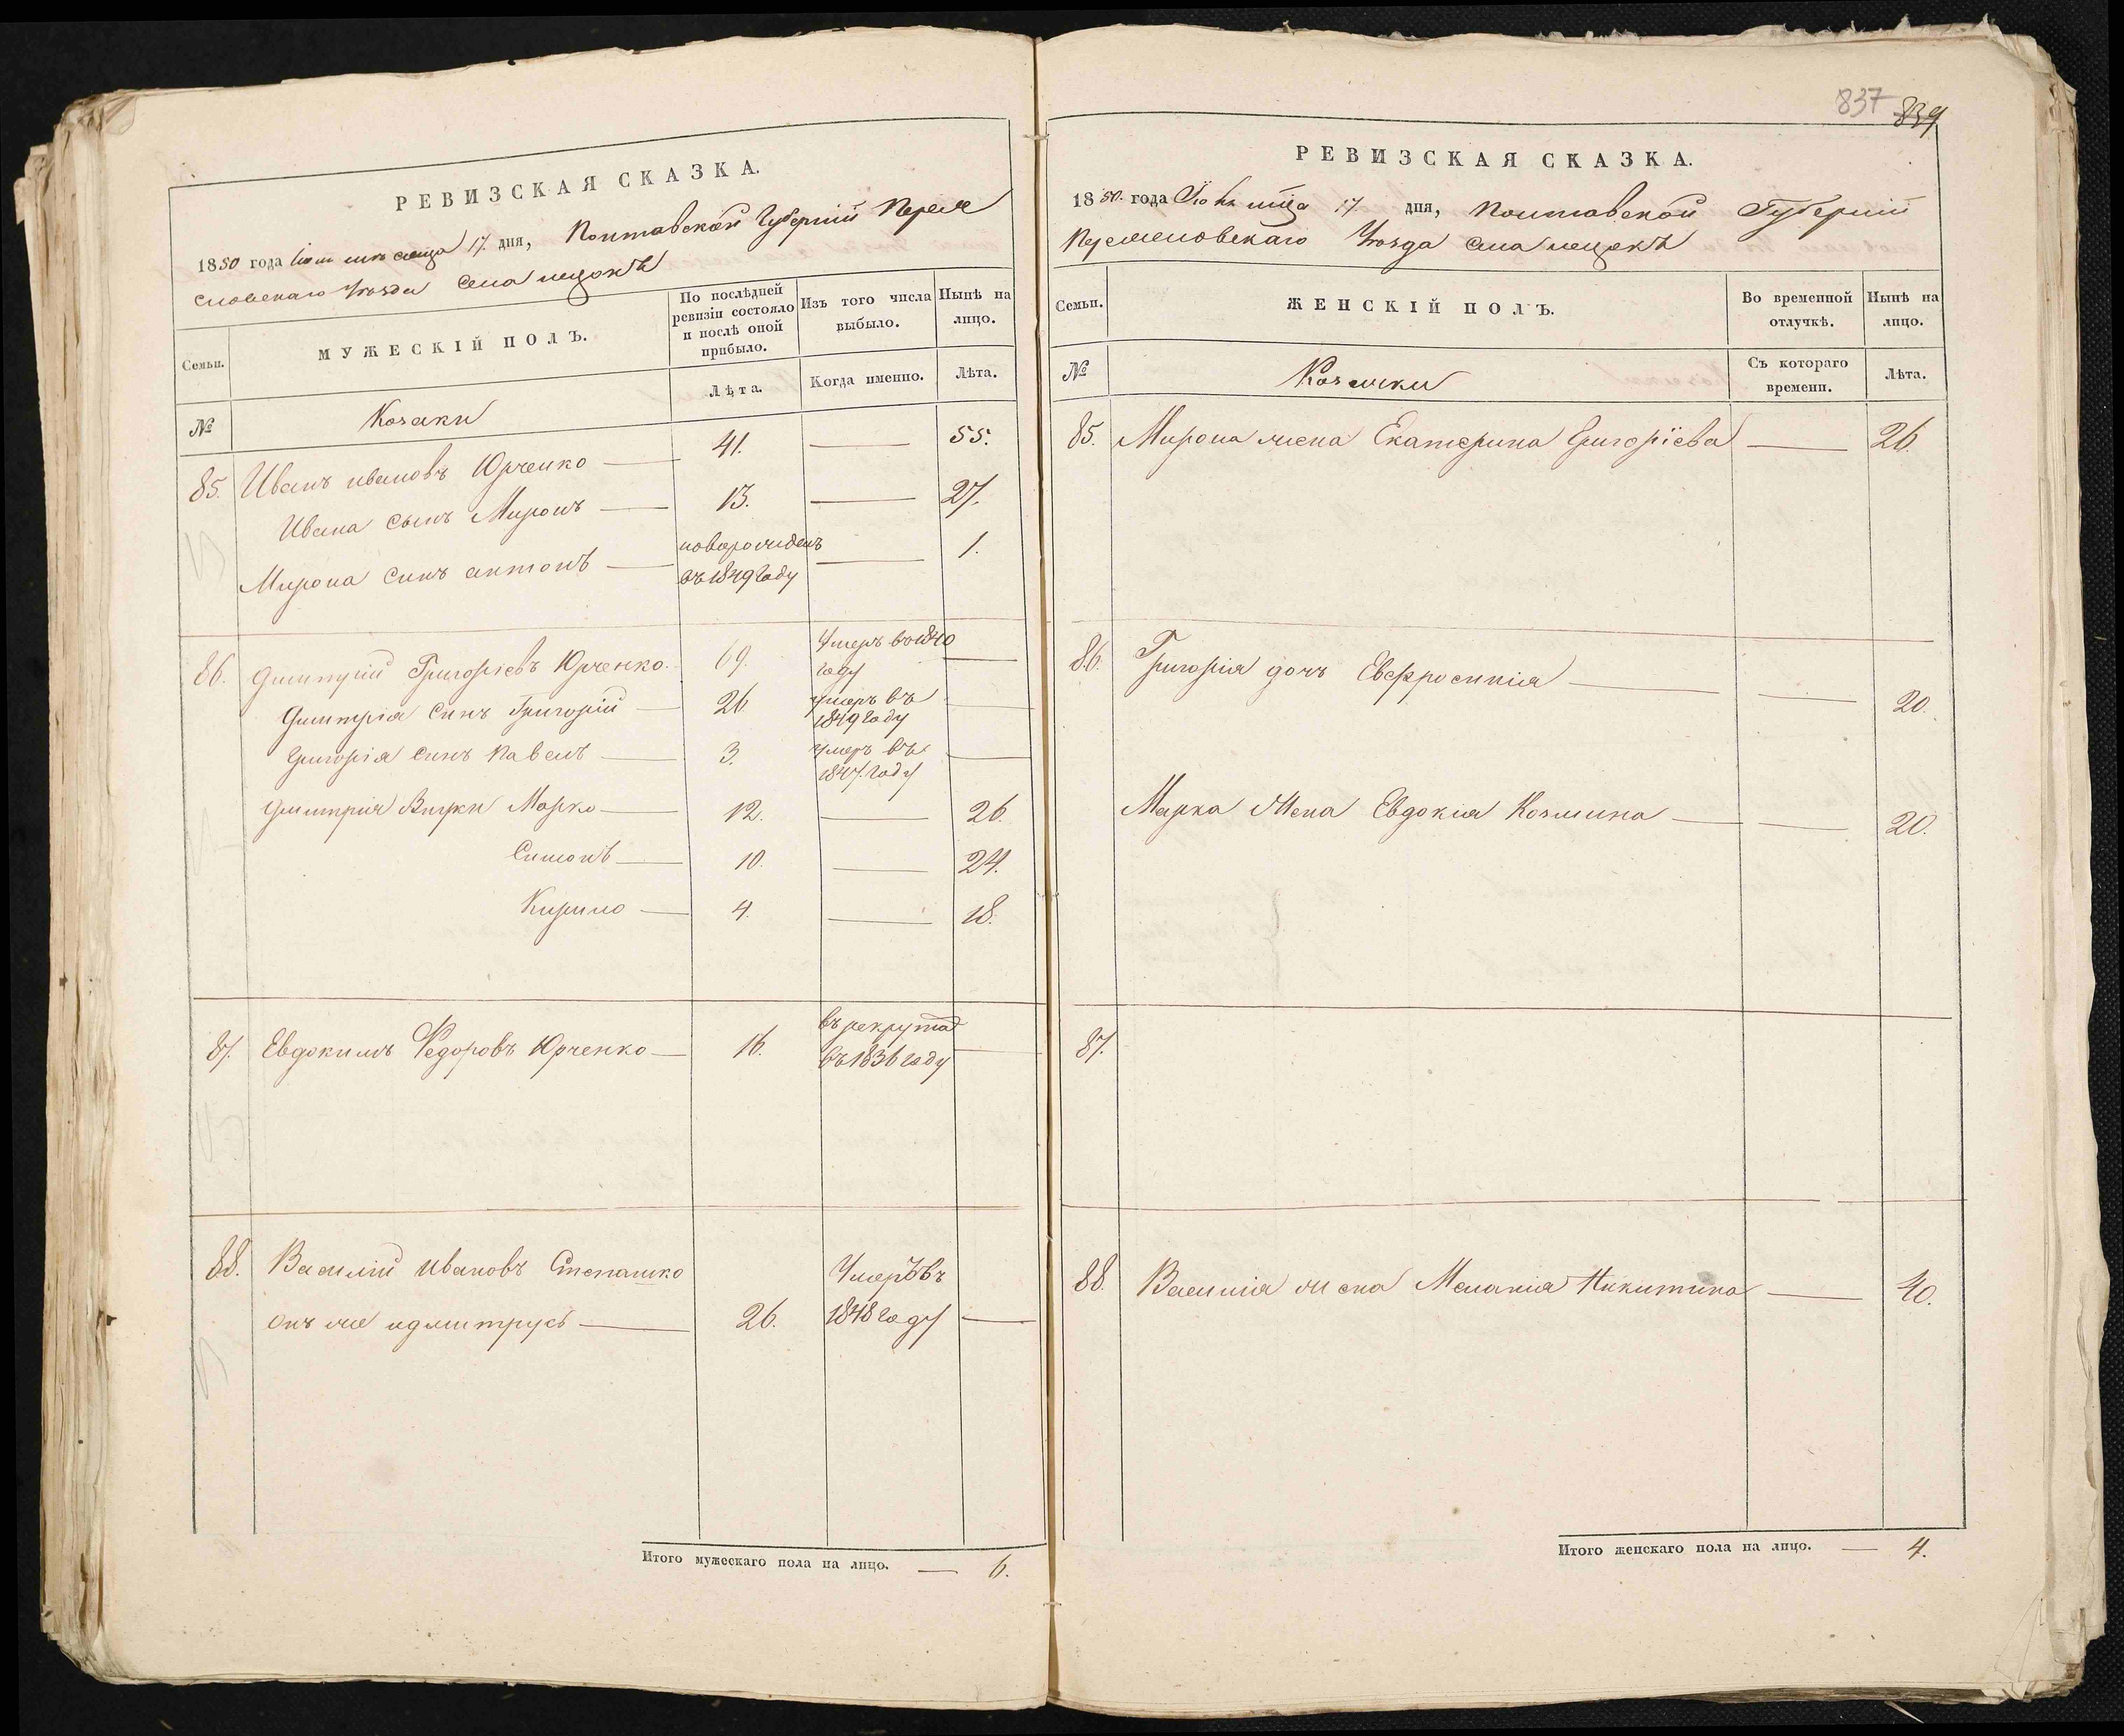 РЕВИЗСКАЯ СКАЗКА.
1850 года Іюня месяца 17. дня, Полтавской Губерніи Перея
словскаго Уезда села
Семьи.
МУЖЕСКІЙ ПОЛЪ.
По послѣдней
ревизіи состояло
и послѣ оной
прибыло.
Изъ того числа
выбыло.
Нынѣ на
лицо.
№
Козаки
Лѣта.
Когда именно.
Лѣта.
85. Иванъ ивановъ Юрченко — 41. — 55.
Ивана сынъ Миронъ — 13. — 27.
Мирона синъ антонъ — новорожденъ въ 1849 Году — 1.
86. Димитрий Григоріевъ Юрченко. 69. Умеръ во 1840 году —
Димитрія синъ Григорій — 26 умеръ въ 1849 Году —
Григорія синъ Павелъ — 3. умеръ въ 1847. Году —
Димитрия Внуки Марко — 12. — 26.
Симонъ — 10. — 24.
Кирило — 4. — 18.
87. Евдокимъ Федоровъ Юрченко — 16. въ рекрута въ 1836 году —
88. Василій Ивановъ Степашко
онъ же — 26. Умеръ въ 1848 году —
Итого мужескаго пола на лицо. — 6.
837 839
РЕВИЗСКАЯ СКАЗКА.
1850. года Іюня мца 17. дня, Полтавской Губерніи
Переясловскаго Уезда села
Семьи.
ЖЕНСКІЙ ПОЛЪ.
Во временной
отлучкѣ.
Нынѣ на
лицо.
№
Козачки
Съ котораго
времени.
Лѣта.
85. Мирона жена Екатерина Григоріева — 26.
86. Григорія дочъ Евфросинія — — 20.
Марка Жена Евдокія Козмина — — 20.
87.
88. Василія жена Меланія Никитина — 40.
Итого женскаго пола на лицо. — 4.